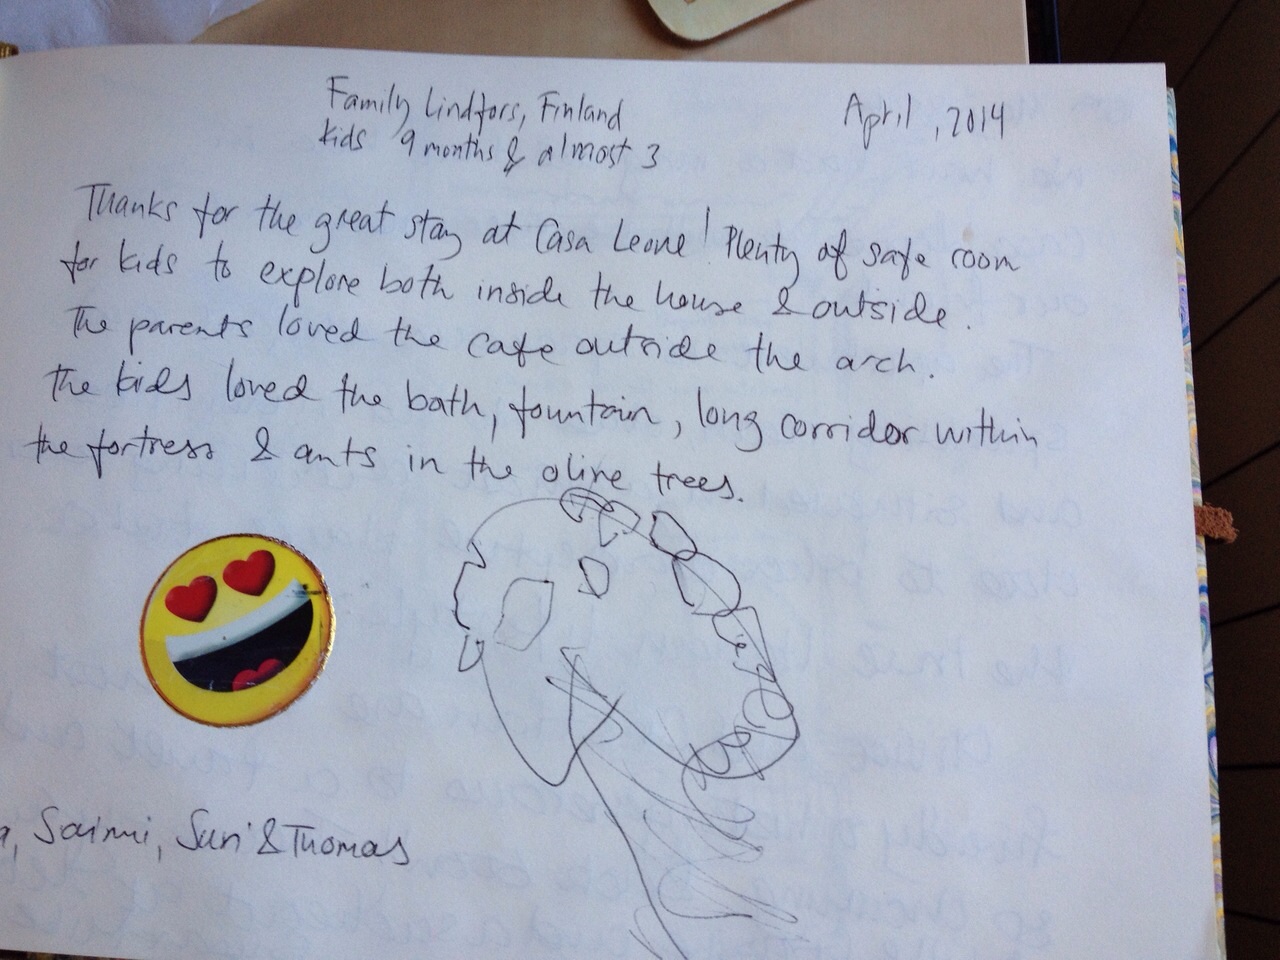 Family Lindfors, Finland
April, 2014
kids 9 months & almost 3
Thanks for the great stay at Casa Leone! Plenty of safe room
for kids to explore both inside the house & outside.
The parents loved the cafe outside the arch.
The kids loved the bath, fountain, long corridor within
the fortress & ants in the olive trees.
Saimi, Suri & Thomas